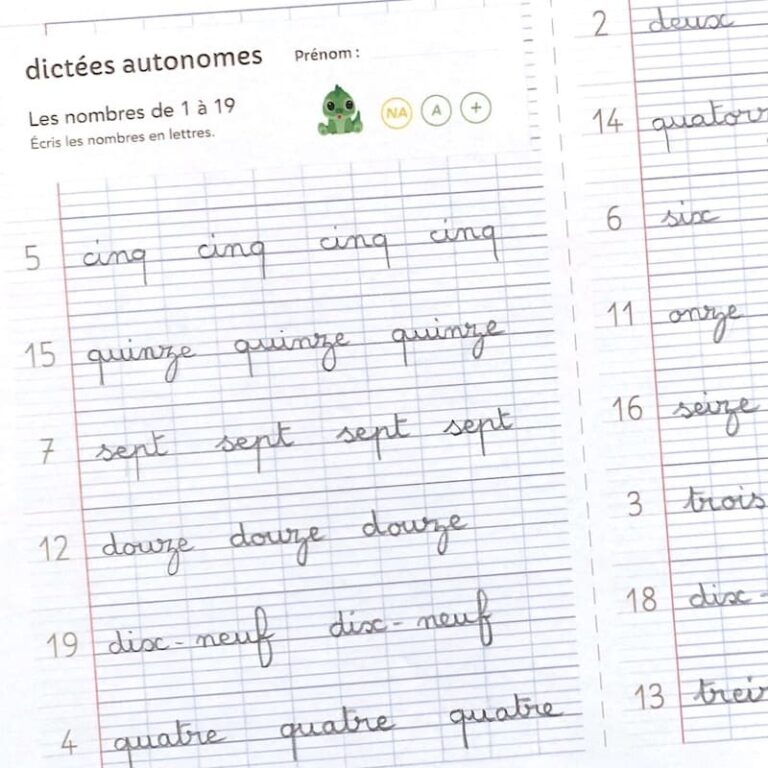 dictées autonomes
Prénom :
Les nombres de 1 à 19
Écris les nombres en lettres.
NA A +
5 cinq cinq cinq cinq
15 quinze quinze quinze
7 sept sept sept sept
12 douze douze douze
19 dix-neuf dix-neuf
4 quatre quatre quatre
2 deux
14 quatorz
6 six
11 onze
16 seize
3 trois
18 dix-
13 treiz